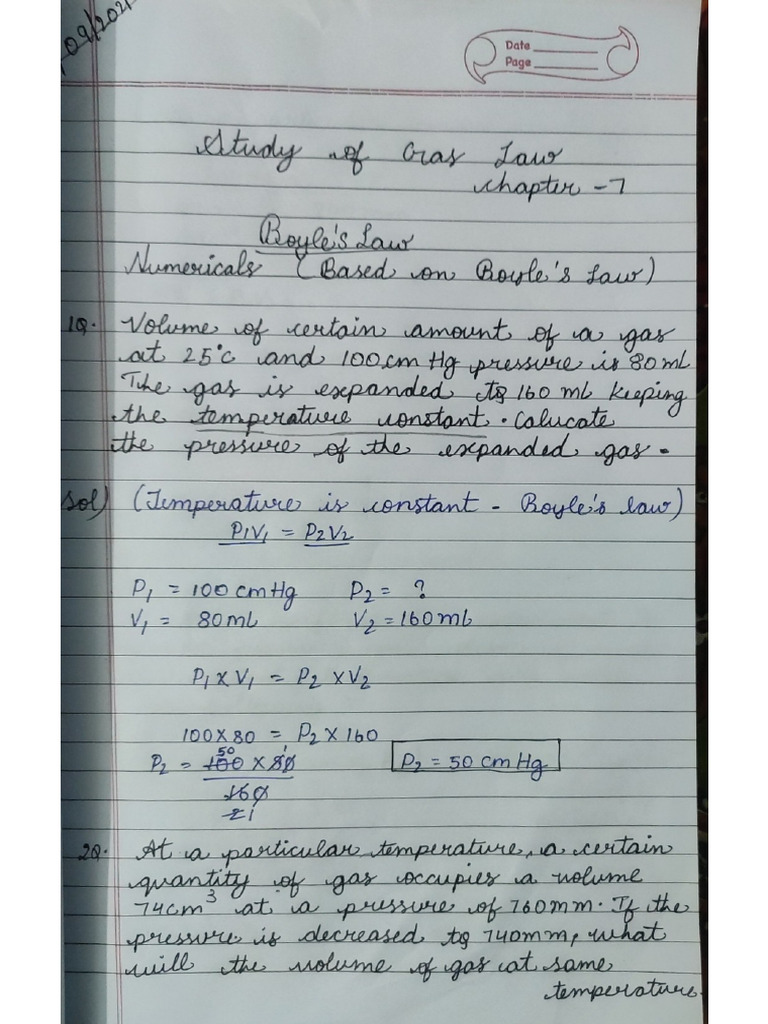 09/2021
Date
Page
Study of Gas Law
chapter - 7
Boyle's Law
Numericals (Based on Boyle's Law)
1Q. Volume of certain amount of a gas
at 25°C and 100cm Hg pressure is 80 ml
The gas is expanded to 160 ml keeping
the temperature constant. Calucate
the pressure of the expanded gas.
Sol) (Temperature is constant - Boyle's law)
P1V1 = P2V2
P1 = 100 cm Hg P2 = ?
V1 = 80 ml V2 = 160 ml
P1 x V1 = P2 x V2
100 x 80 = P2 x 160
50 1
P2 = 100 x 80 P2 = 50 cm Hg
160
21
2Q. At a particular temperature, a certain
quantity of gas occupies a volume
74cm³ at a pressure of 760mm. If the
pressure is decreased to 740mm, what
will the volume of gas at same
temperature.